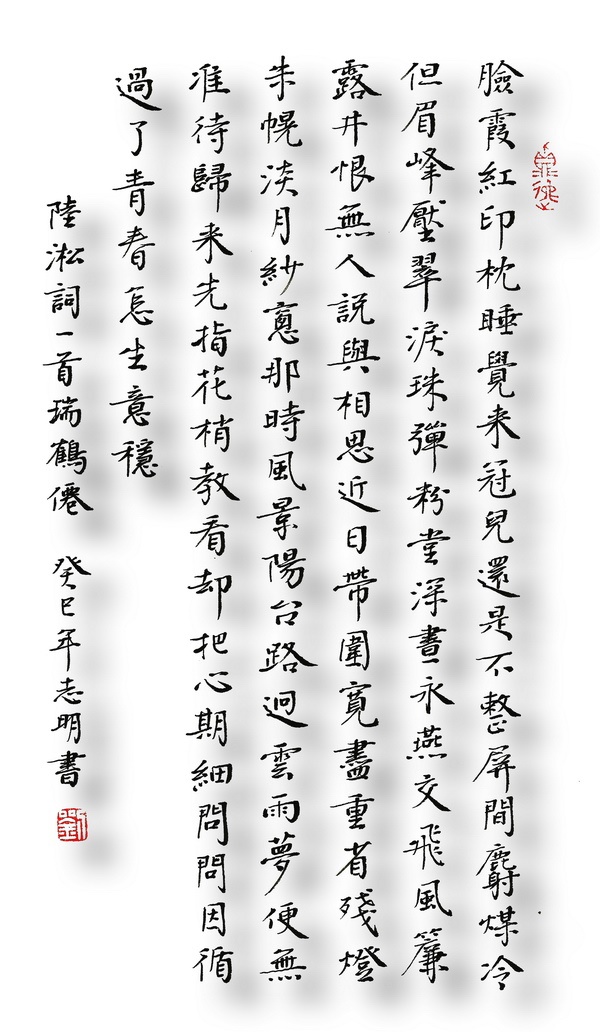 臉霞紅印枕睡覺来冠兒還是不整屏間麝煤冷
但眉峰壓翠淚珠彈粉堂深晝永燕交飛風簾
露井恨無人説與相思近日帶圍寬盡重省殘燈
朱幌淡月紗窻那時風景陽台路迥雲雨夢便無
准待歸来先指花梢教看却把心期細問問因循
過了青春怎生意穩
陸淞詞一首瑞鶴僊 癸巳年志明書
劉